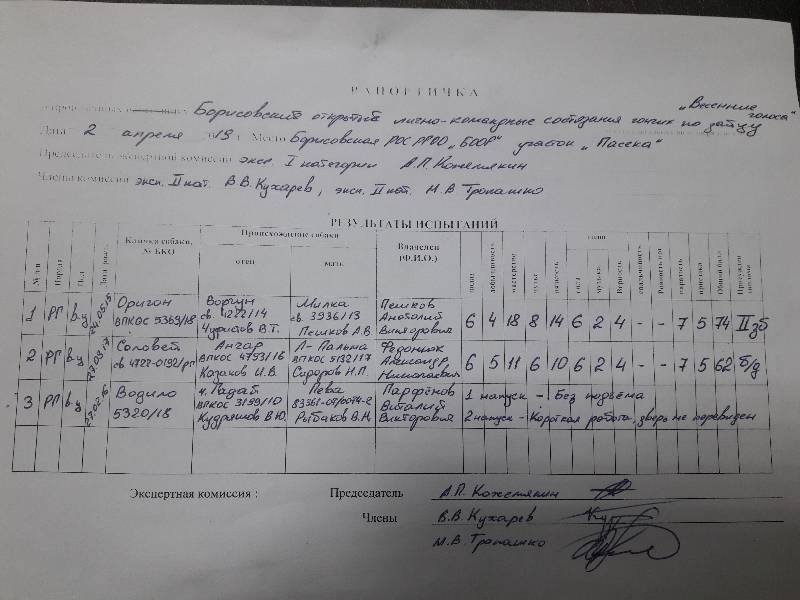 РАПОРТИЧКА
„Весенние голоса"
Борисовские открытые лично-командные состязания гончих по зайцу
Дата 2 апреля 2019 г. Место Борисовская РОС РГОО „БООР" участок „Пасека"
Председатель экспертной комиссии эксп. I категории А.П. Кожемякин
Члены комиссии эксп. II кат. В.В. Кухарев, эксп. II кат. М.В Тропашко
РЕЗУЛЬТАТЫ ИСПЫТАНИЙ
Порода Пол Кличка собаки, № ВКО Происхождение собаки отец мать Владелец (Ф.И.О.) мастерство вязкость сила музыка верность Общий балл
1 РГ в.у Оригон ВПКОС 5369/18 Ворчун св. 4222/14 Чурилов В.Т. Милка св. 3936/13 Пешков А.В. Пешков Анатолий Викторович 6 4 18 8 14 6 2 4 - - 7 5 74 II зб
2 РГ в.у Соловей св 4722-0192/рг Ангар ВПКОС 4753/16 Казаков И.В. Л-Пальма ВПКОС 5132/17 Сидоров Н.П. Федонюк Александр Николаевич 6 5 11 6 10 6 2 4 - - 7 5 62 б/д
3 РГ в.у Водило 5320/18 ч. Гадай ВПКОС 3199/10 Кудряшов В.Ю. Пева Рыбаков В.Н. Парфёнов Виталий Викторович 1 напуск - Без подъема
2 напуск - Короткая работа, зверь не перевиден
Экспертная комиссия : Председатель А.П. Кожемякин
Члены В.В. Кухарев
М.В Тропашко